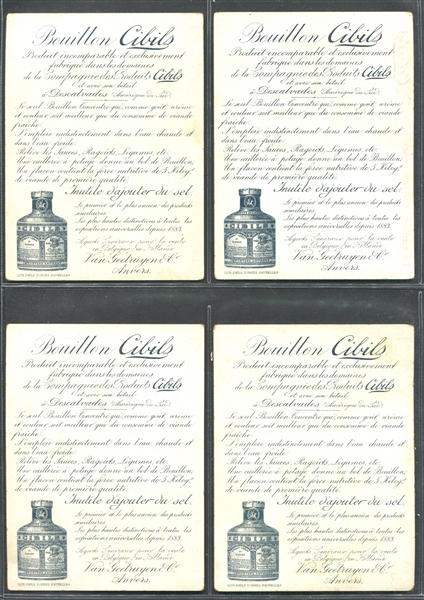 Bouillon Cibils
Produit incomparable et exclusivement
fabriqué dans les domaines
de la Compagnie des Produits Cibils
et avec son bétail
à Descalvados (Amérique du Sud)
Le seul Bouillon Concentré qui, comme goût, arôme
et couleur soit meilleur que du consommé de viande
fraîche.
S'emploie indistinctement dans l'eau chaude et
dans l'eau froide.
Relève les Sauces, Ragoûts, Légumes, etc.
Une cuillerée à potage donne un bol de Bouillon.
Un flacon contient la force nutritive de 5 Kilogs
de viande de première qualité.
Inutile d'ajouter du sel.
Le premier et le plus ancien des produits
similaires
Les plus hautes distinctions à toutes les
expositions universelles depuis 1883.
Agents Généraux pour la vente
en Belgique, en
Van Geetruyen & Co
Anvers.
CIBILS
Bouillon Cibils
Produit incomparable et exclusivement
fabriqué dans les domaines
de la Compagnie des Produits Cibils
et avec son bétail
à Descalvados (Amérique du Sud)
Le seul Bouillon Concentré qui, comme goût, arôme
et couleur soit meilleur que du consommé de viande
fraîche.
S'emploie indistinctement dans l'eau chaude et
dans l'eau froide.
Relève les Sauces, Ragoûts, Légumes, etc.
Une cuillerée à potage donne un bol de Bouillon.
Un flacon contient la force nutritive de 5 Kilogs
de viande de première qualité.
Inutile d'ajouter du sel.
Le premier et le plus ancien des produits
similaires
Les plus hautes distinctions à toutes les
expositions universelles depuis 1883.
Agents Généraux pour la vente
en Belgique, en
Van Geetruyen & Co
Anvers.
CIBILS
Bouillon Cibils
Produit incomparable et exclusivement
fabriqué dans les domaines
de la Compagnie des Produits Cibils
et avec son bétail
à Descalvados (Amérique du Sud)
Le seul Bouillon Concentré qui, comme goût, arôme
et couleur soit meilleur que du consommé de viande
fraîche.
S'emploie indistinctement dans l'eau chaude et
dans l'eau froide.
Relève les Sauces, Ragoûts, Légumes, etc.
Une cuillerée à potage donne un bol de Bouillon.
Un flacon contient la force nutritive de 5 Kilogs
de viande de première qualité.
Inutile d'ajouter du sel.
Le premier et le plus ancien des produits
similaires
Les plus hautes distinctions à toutes les
expositions universelles depuis 1883.
Agents Généraux pour la vente
en Belgique, en
Van Geetruyen & Co
Anvers.
CIBILS
Bouillon Cibils
Produit incomparable et exclusivement
fabriqué dans les domaines
de la Compagnie des Produits Cibils
et avec son bétail
à Descalvados (Amérique du Sud)
Le seul Bouillon Concentré qui, comme goût, arôme
et couleur soit meilleur que du consommé de viande
fraîche.
S'emploie indistinctement dans l'eau chaude et
dans l'eau froide.
Relève les Sauces, Ragoûts, Légumes, etc.
Une cuillerée à potage donne un bol de Bouillon.
Un flacon contient la force nutritive de 5 Kilogs
de viande de première qualité.
Inutile d'ajouter du sel.
Le premier et le plus ancien des produits
similaires
Les plus hautes distinctions à toutes les
expositions universelles depuis 1883.
Agents Généraux pour la vente
en Belgique, en
Van Geetruyen & Co
Anvers.
CIBILS